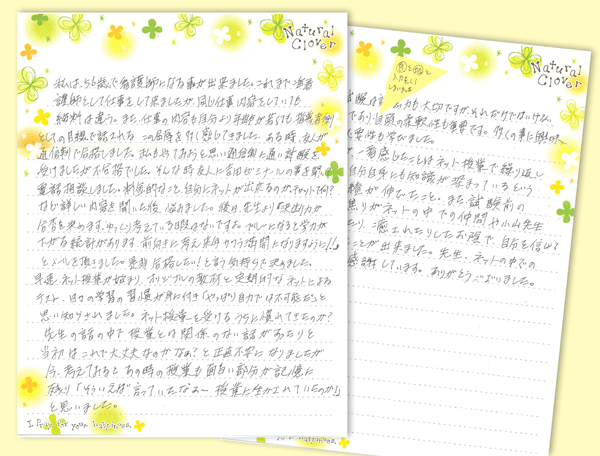 Natural
Clover
私は、56歳で看護師になる事が出来ました。これまで准看
護師として仕事をして来ましたが、同じ仕事内容をしていても
給料は違う。また、仕事の内容も自分より年齢が若くても指導者側
としての目線で話される、この屈辱を行く感じてきました。ある時、友人が
通信制で合格しました。私もやってみようと思い通信制に通い試験を
受けましたが不合格でした。そんな時友人に吉田ゼミナールの事を聞き
電話相談しました。対象的なこと、自分にネットが出来るのか、チャットって何?
など詳しい内容を聞いた後、悩みました。後日、先生より「決断力が
合否を決めます。ゆっくり考えている暇はないですよ。ブルーになると学力が
下がる統計があります。前向きに考え実りのある時間になりますように!!」
とメールを頂きました。絶対合格したい!と言う気持ちで決めました。
早速、ネット授業が始まり、オリジナルの教材と定期的なネットによる
テスト、日々の学習の習慣が身に付き「やっぱり自力では不可能だ」と
思い知らされました。ネット授業を受けるうちに慣れてきたのか?
先生の話の中で授業とは関係のない話があったりと
当初はこれで大丈夫なのかなぁ?と正直不安になりましたが
今、考えてみるとあの時の授業も面白い部分が記憶に
残り「そういえば言っていたなぁ〜授業に生かされていたのか」
と思いました。
I Pray for your happiness.
Natural
Clover
試験は
力も大切ですが、それだけではいけない
であり自頭の柔軟性も重要です。行くの事に興味や
必要性も学びました。
一番感じたことはネット授業で繰り返し
自分自身にも知識が深まっているとう
績が伸びたこと、また試験前の
焦りがネットの中での仲間や小山先生
たり、癒されたりしたお陰で、自分を信じて
ことが出来ました。先生、ネットの中での
感謝しています。ありがとうございました。